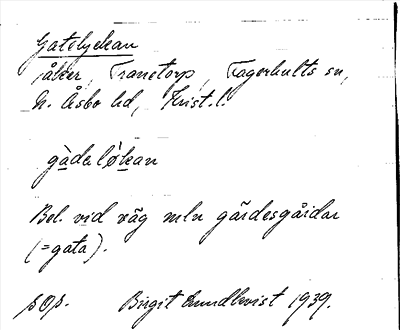 Gatelyckan
åker, Tranetorp, Fagerhults sn,
N. Åsbo hd, Krist. l.
gàdelø̀kan
Bel. vid väg mln gärdesgårdar
(=gata).
pop. Birgit Lundkvist 1939.